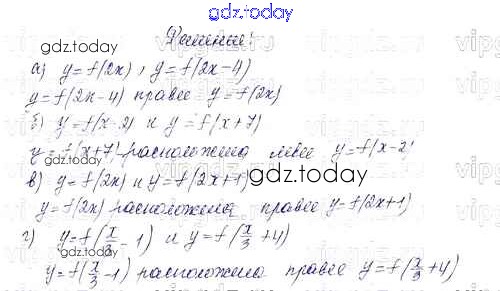 gdz.today
Решение:
gdz.today
а) y=f(2x), y=f(2x-4)
y=f(2x-4) правее y=f(2x)
б) y=f(x-2) и y=f(x+7)
y=f(x+7) расположена левее y=f(x-2)
в) y=f(2x) и y=f(2x+1)
gdz.today
y=f(2x) расположена правее y=f(2x+1)
г) y=f(x/3-1) и y=f(x/3+4)
gdz.today
y=f(x/3-1) расположена правее y=f(x/3+4)